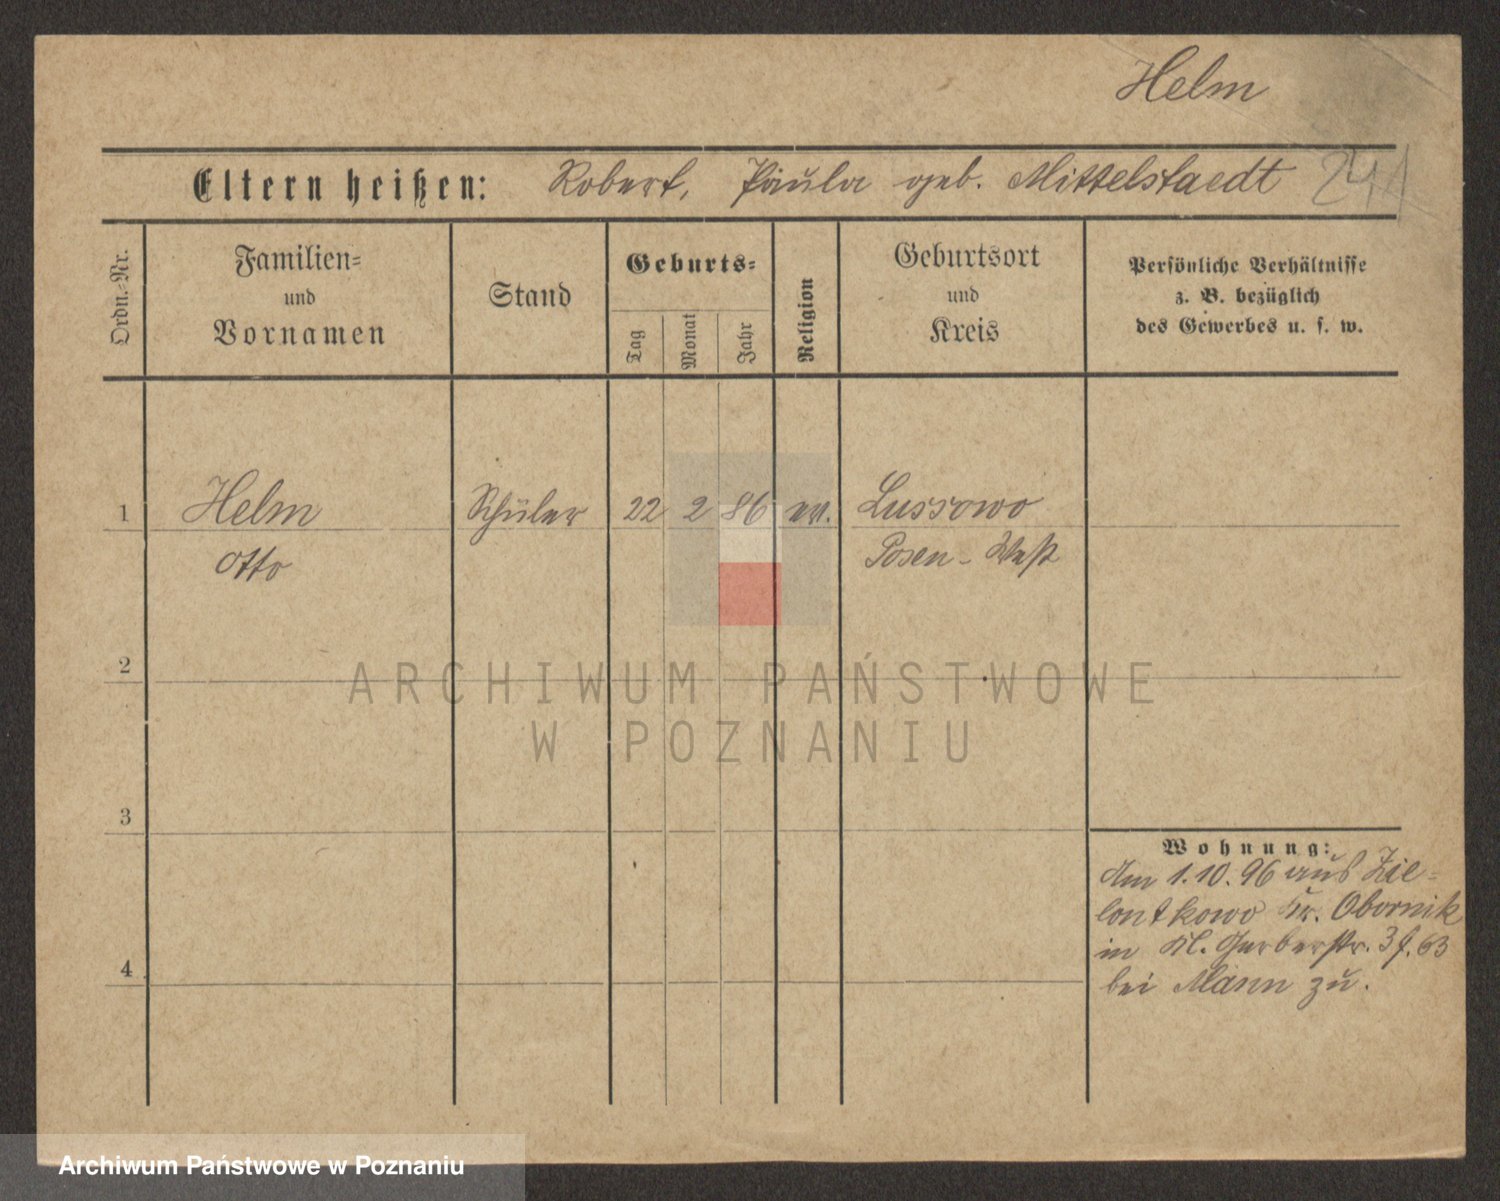 Helm
Eltern heißen: Robert, Paula geb. Mittelstaedt
241
Ordn.-Nr.
Familien-
und
Vornamen
Stand
Geburts-
Tag
Monat
Jahr
Religion
Geburtsort
und
Kreis
Persönliche Verhältnisse
z. B. bezüglich
des Gewerbes u. s. w.
1 Helm Schüler 22 2 86 ev. Lussowo
Otto Posen-West
2
3
4
Wohnung:
Am 1.10.96 aus Zie-
lontkowo Kr. Obornik
in Kl. Gerberstr. 63
bei Mann zu.
ARCHIWUM PAŃSTWOWE
W POZNANIU
Archiwum Państwowe w Poznaniu